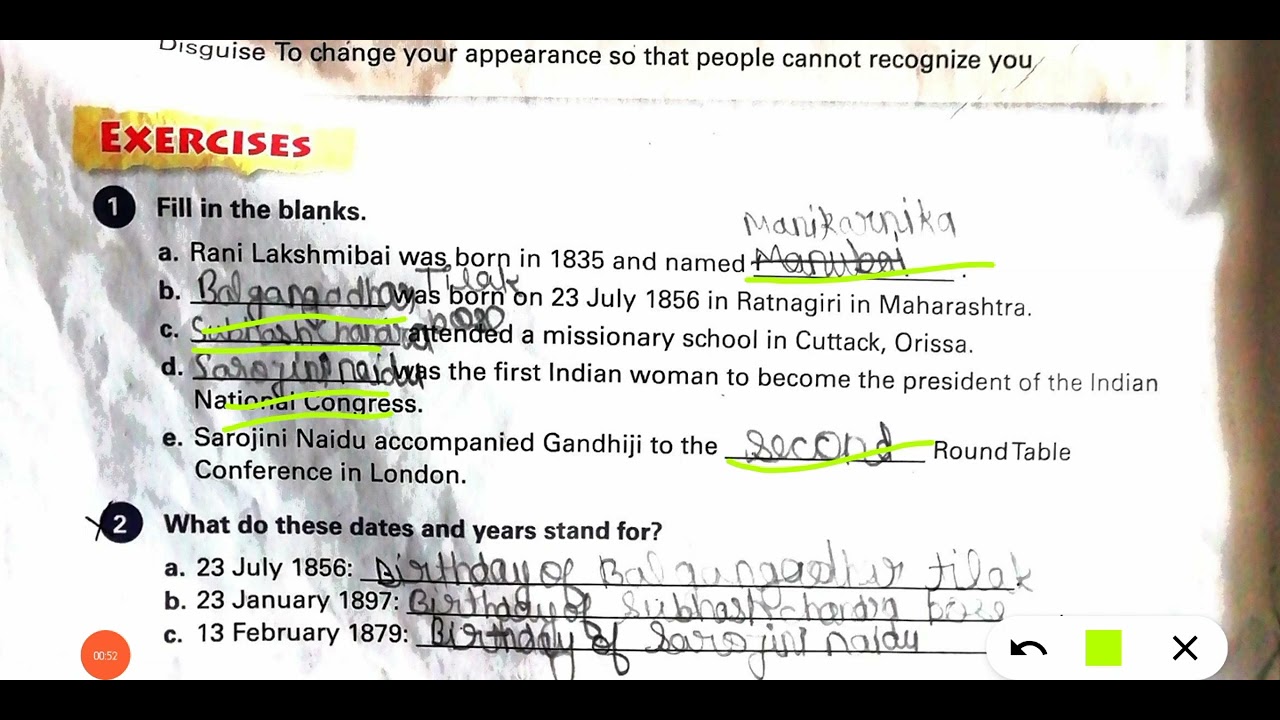 Disguise To change your appearance so that people cannot recognize you
EXERCISES
1 Fill in the blanks.
Manikarnika
a. Rani Lakshmibai was born in 1835 and named Manubai.
Tilak
b. Balgangadhar was born on 23 July 1856 in Ratnagiri in Maharashtra.
c. Subhash Chandra bose attended a missionary school in Cuttack, Orissa.
d. Sarojini naidu was the first Indian woman to become the president of the Indian
National Congress.
e. Sarojini Naidu accompanied Gandhiji to the second Round Table
Conference in London.
2 What do these dates and years stand for?
a. 23 July 1856: Birthday of Balgangadhir tilak
b. 23 January 1897: Birthady of Subhash chandra bose
c. 13 February 1879: Birthday of Sarojini naidu
00:52